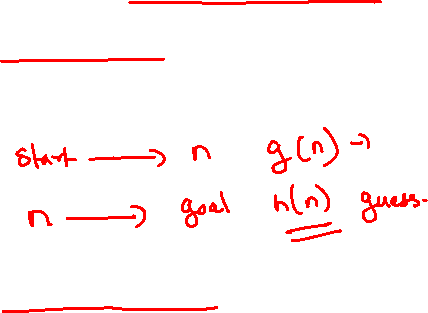 start → n g(n) →
n → goal h(n) guess.